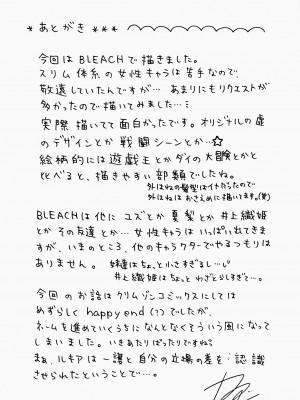 *あとがき***
今回はBLEACHで描きました。
スリム体系の女性キャラは苦手なので、
敬遠していたんですが… あまりにもリクエストが
多かったので描いてみました…
実際描いてて面白かったです。オリジナルの虚
のデザインとか戦闘シーンとか…☆
絵柄的には遊戯王とかダイの大冒険とかと
比べると、描きやすい部類でしたね。
外はねの髪型はイヤだったので
外はねはおさえめに描いてます。(笑)
BLEACHは他にユズとか夏梨とか井上織姫
とかその友達とか…女性キャラはいっぱいでてきま
すが、いまのところ、他のキャラクターでやるつもりは
ありません。妹達はちょっと小さすぎるし…
井上織姫はちょっとわざとらしすぎて…。
今回のお話はクリムゾンコミックスにしては
めずらしくhappy end(?)でしたが、
ネームを進めていくうちになんとなくそういう風になって
しまいました。いきあたりばったりですね?
まぁ、ルキアは一護と自分の立場の差を認識
させられたということで…。